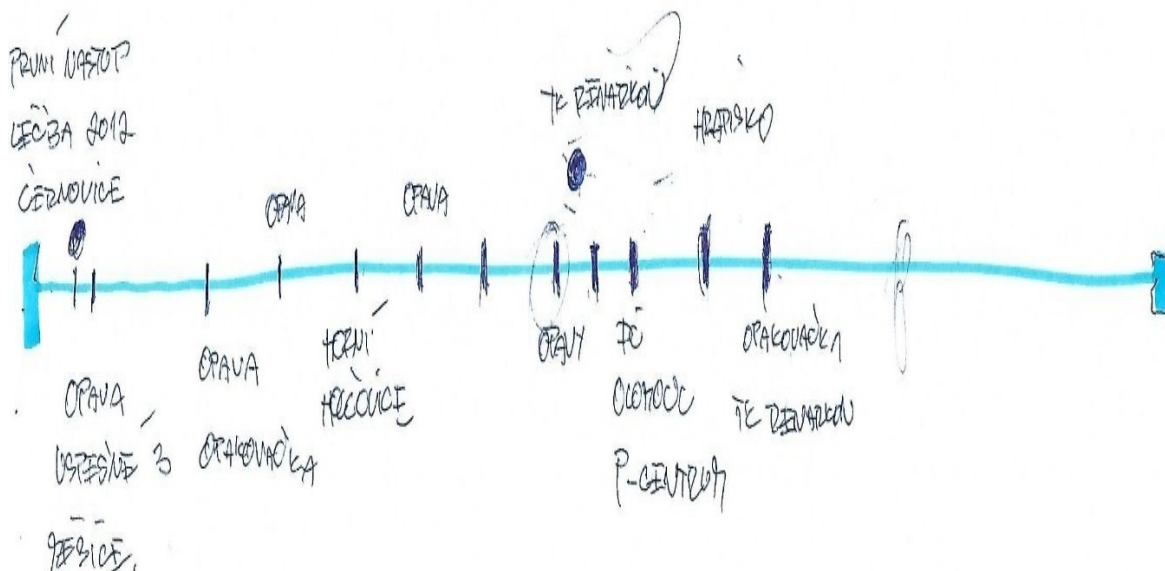 PRVNÍ NÁSTUP
LÉČBA 2012
ČERNOVICE
OPAVA
OPAVA
TK RENARKON
HRADISKO
OPAVA
ÚSPĚŠNĚ 3
MĚSÍCE.
OPAVA
OPAKOVAČKA
HORNÍ
HOLČOVICE
OPAVY
DC
OLOMOUC
P-CENTRUM
OPAKOVAČKA
TK RENARKON